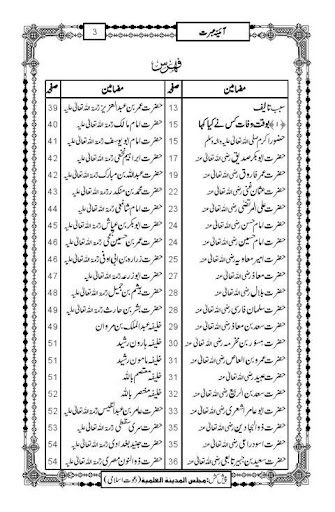 آئینۂ عبرت
3
فہرس
مضامین صفحہ
سبب تالیف 13
﴿۱﴾ بوقت وفات کس نے کیا کہا 15
حضور اکرم صلی اللہ تعالیٰ علیہ والہ وسلم 15
حضرت ابوبکر صدیق رضی اللہ تعالیٰ عنہ 17
حضرت عمر فاروق رضی اللہ تعالیٰ عنہ 19
حضرت عثمان غنی رضی اللہ تعالیٰ عنہ 20
حضرت علی المرتضیٰ رضی اللہ تعالیٰ عنہ 21
حضرت امام حسن رضی اللہ تعالیٰ عنہ 24
حضرت امام حسین رضی اللہ تعالیٰ عنہ 25
حضرت امیر معاویہ رضی اللہ تعالیٰ عنہ 26
حضرت معاذ رضی اللہ تعالیٰ عنہ 27
حضرت بلال رضی اللہ تعالیٰ عنہ 28
حضرت سلمان فارسی رضی اللہ تعالیٰ عنہ 28
حضرت سعد بن معاذ رضی اللہ تعالیٰ عنہ 29
حضرت مسور بن مخرمہ رضی اللہ تعالیٰ عنہ 30
حضرت عمرو بن العاص رضی اللہ تعالیٰ عنہ 31
حضرت عبید رضی اللہ تعالیٰ عنہ 31
حضرت سعد بن الربیع رضی اللہ تعالیٰ عنہ 32
حضرت ابو عامر اشعری رضی اللہ تعالیٰ عنہ 33
حضرت ذوالبجادین رضی اللہ تعالیٰ عنہ 35
حضرت اسود راعی رضی اللہ تعالیٰ عنہ 35
حضرت سعید بن جبیر تابعی رضی اللہ تعالیٰ عنہ 36
مضامین صفحہ
حضرت عمر بن عبدالعزیز رحمۃ اللہ تعالیٰ علیہ 39
حضرت امام مالک رحمۃ اللہ تعالیٰ علیہ 40
حضرت امام ابو یوسف رحمۃ اللہ تعالیٰ علیہ 41
حضرت ابراہیم نخعی رحمۃ اللہ تعالیٰ علیہ 42
حضرت عبداللہ بن مبارک رحمۃ اللہ تعالیٰ علیہ 42
حضرت محمد بن منکدر رحمۃ اللہ تعالیٰ علیہ 43
حضرت امام شافعی رحمۃ اللہ تعالیٰ علیہ 44
حضرت ابوبکر بن عیاش رحمۃ اللہ تعالیٰ علیہ 45
حضرت رحمۃ اللہ تعالیٰ علیہ 46
حضرت زرارہ بن ابی اوفیٰ رحمۃ اللہ تعالیٰ علیہ 46
حضرت ابوزرعہ رحمۃ اللہ تعالیٰ علیہ 47
حضرت بن جمیل رحمۃ اللہ تعالیٰ علیہ 48
حضرت بشر بن حارث رحمۃ اللہ تعالیٰ علیہ 49
خلیفہ عبدالملک بن مروان 49
خلیفہ ہارون رشید 51
خلیفہ مامون رشید 51
خلیفہ معتصم باللہ 51
خلیفہ منتصر باللہ 52
حضرت عامر بن عبدالقیس رحمۃ اللہ تعالیٰ علیہ 52
حضرت سری سقطی رحمۃ اللہ تعالیٰ علیہ 53
حضرت جنید بغدادی رحمۃ اللہ تعالیٰ علیہ 54
حضرت ذوالنون مصری رحمۃ اللہ تعالیٰ علیہ 54
پیش کش: مجلس المدینة العلمیة (دعوت اسلامی)